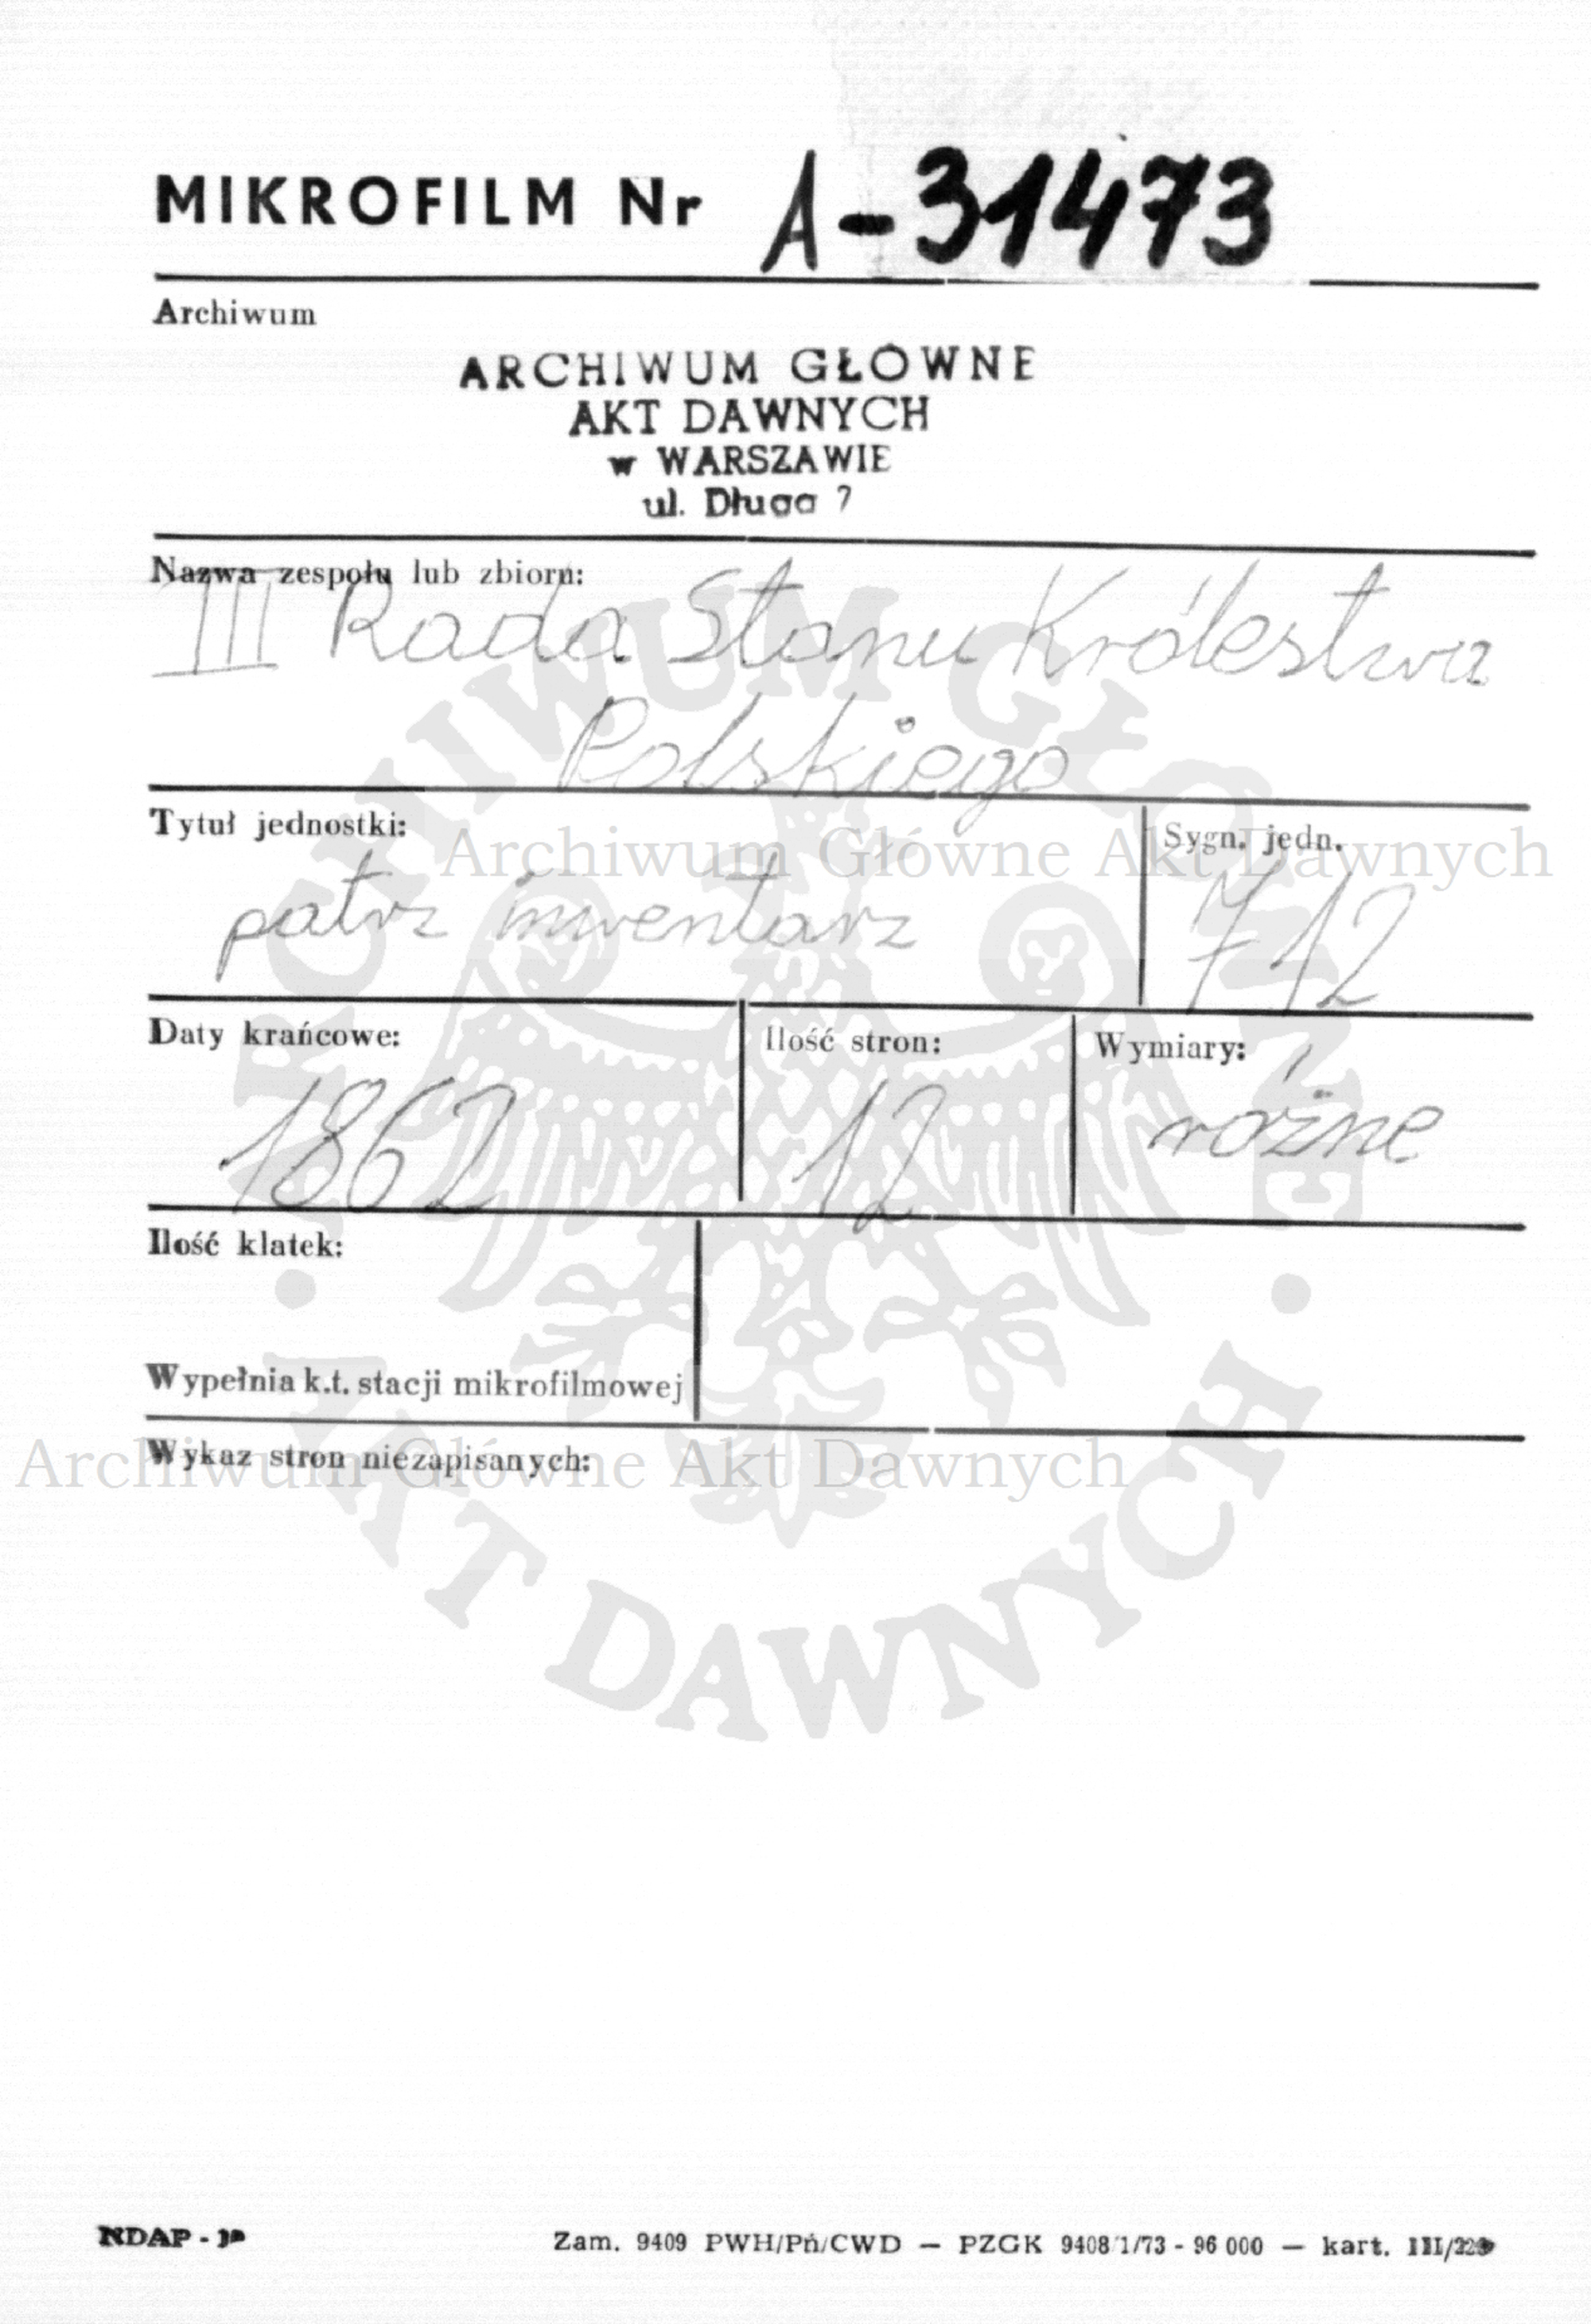 MIKROFILM Nr A-31473
Archiwum
ARCHIWUM GŁÓWNE
AKT DAWNYCH
w WARSZAWIE
ul. Długa 7
Nazwa zespołu lub zbioru:
III Rada Stanu Królestwa
Polskiego
Tytuł jednostki:
patrz inwentarz
Sygn. jedn.
712
Daty krańcowe:
1862
Ilość stron:
12
Wymiary:
różne
Ilość klatek:
Wypełnia k.t. stacji mikrofilmowej
Wykaz stron niezapisanych:
Archiwum Główne Akt Dawnych
Archiwum Główne Akt Dawnych
ARCHIWUM GŁÓWNE • AKT DAWNYCH •
NDAP -
Zam. 9409 PWH/Pń/CWD — PZGK 9408/1/73 - 96 000 — kart. III/229